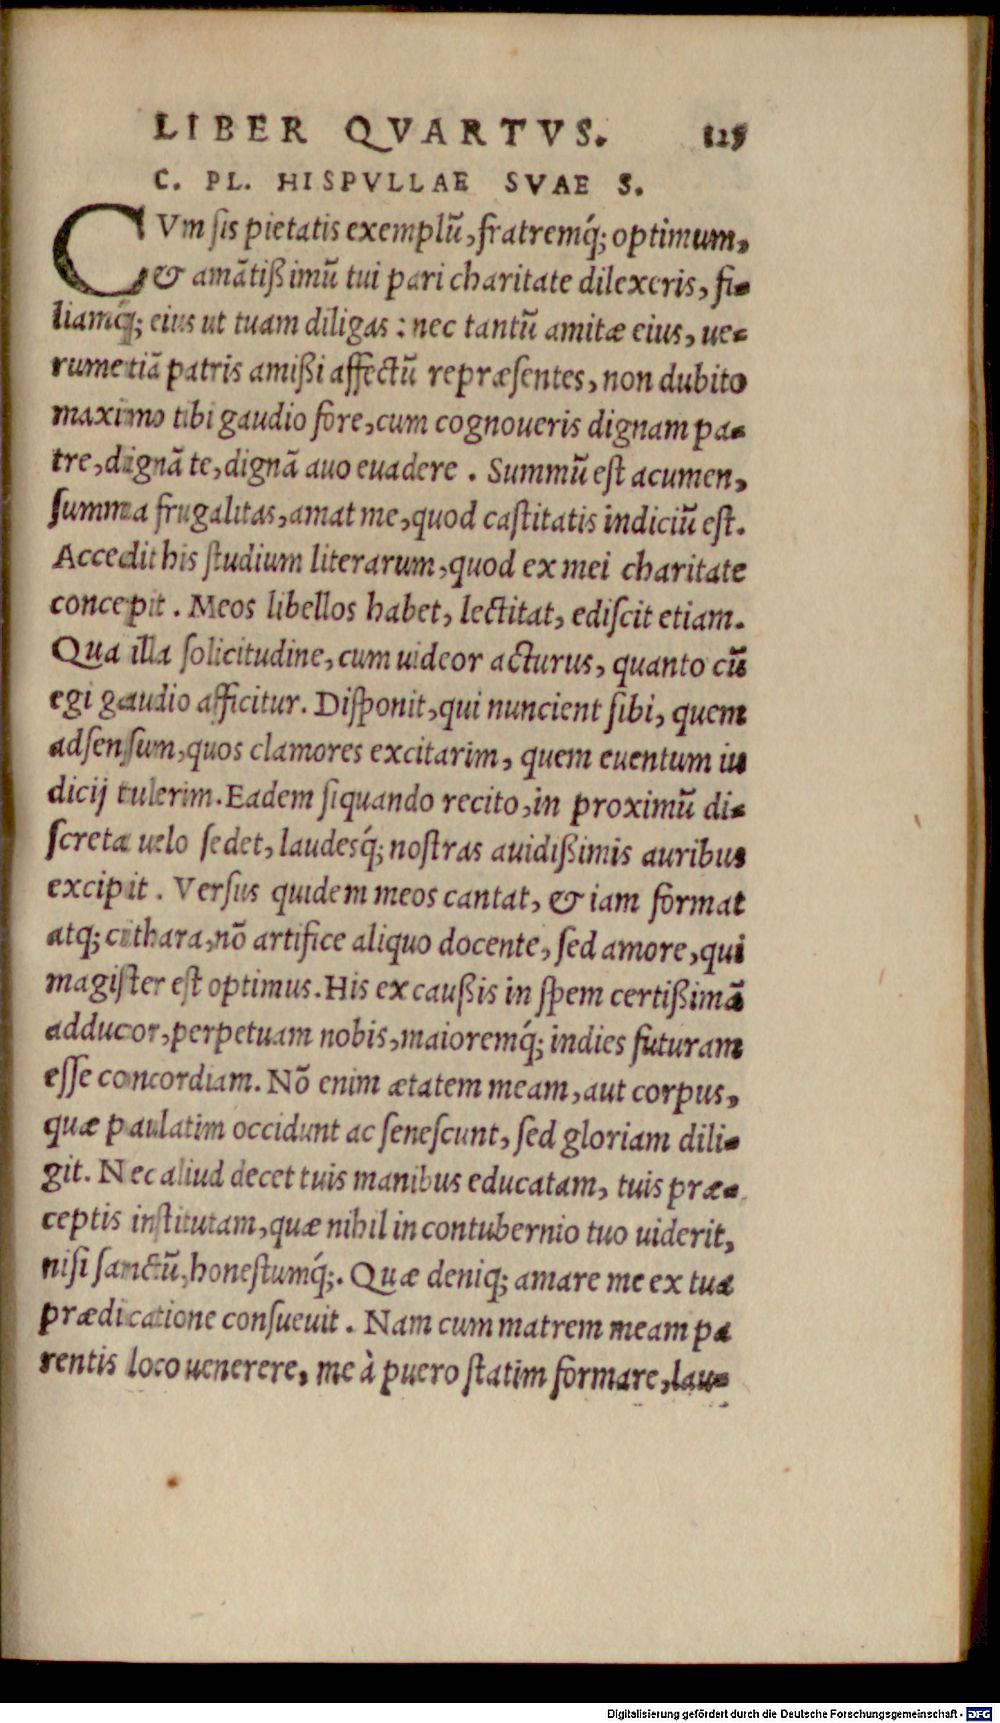 LIBER QVARTVS. 125
C. PL. HISPVLLAE SVAE S.
CVm ſis pietatis exemplũ, fratremq́; optimum,
& amãtißimũ tui pari charitate dilexeris, fi-
liamq́; eius ut tuam diligas: nec tantũ amitæ eius, ue-
rumetiã patris amißi affectũ repræſentes, non dubito
maximo tibi gaudio fore, cum cognoueris dignam pa-
tre, dignã te, dignã auo euadere. Summũ eſt acumen,
ſumma frugalitas, amat me, quod caſtitatis indiciũ eſt.
Accedit his ſtudium literarum, quod ex mei charitate
concepit. Meos libellos habet, lectitat, ediſcit etiam.
Qua illa ſolicitudine, cum uideor acturus, quanto cũ
egi gaudio afficitur. Diſponit, qui nuncient ſibi, quem
adſenſum, quos clamores excitarim, quem euentum iu
dicij tulerim. Eadem ſiquando recito, in proximũ di-
ſcreta uelo ſedet, laudesq́; noſtras auidißimis auribus
excipit. Verſus quidem meos cantat, & iam format
atq; cithara, nõ artifice aliquo docente, ſed amore, qui
magiſter eſt optimus. His ex caußis in ſpem certißimã
adducor, perpetuam nobis, maioremq́; indies futuram
eſſe concordiam. Nõ enim ætatem meam, aut corpus,
quæ paulatim occidunt ac ſeneſcunt, ſed gloriam dili-
git. Nec aliud decet tuis manibus educatam, tuis præ-
ceptis inſtitutam, quæ nihil in contubernio tuo uiderit,
niſi ſanctũ, honeſtumq́;. Quæ deniq; amare me ex tua
prædicatione conſueuit. Nam cum matrem meam pa
rentis loco uenerere, me à puero ſtatim formare, lau-
Digitalisierung gefördert durch die Deutsche Forschungsgemeinschaft - DFG